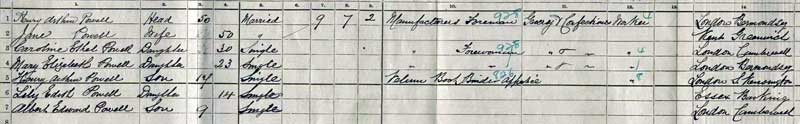 1 Henry Arthur Powell Head 50 Married 9 7 2 Manufacturers Foreman Confectioner Worker 4 London Bermondsey
2 Jane Powell Wife 50 " Kent Greenwich
3 Caroline Ethel Powell Daughter 30 Single Forewoman " " " 4 London Camberwell
4 Mary Elizabeth Powell Daughter 23 Single " " " 4 London Bermondsey
5 Henry Arthur Powell Son 17 Single Book Binder Apprentice London S Kensington
6 Lily Edith Powell Daughter 14 Single Essex Barking
7 Albert Edward Powell Son 9 Single London Camberwell
8